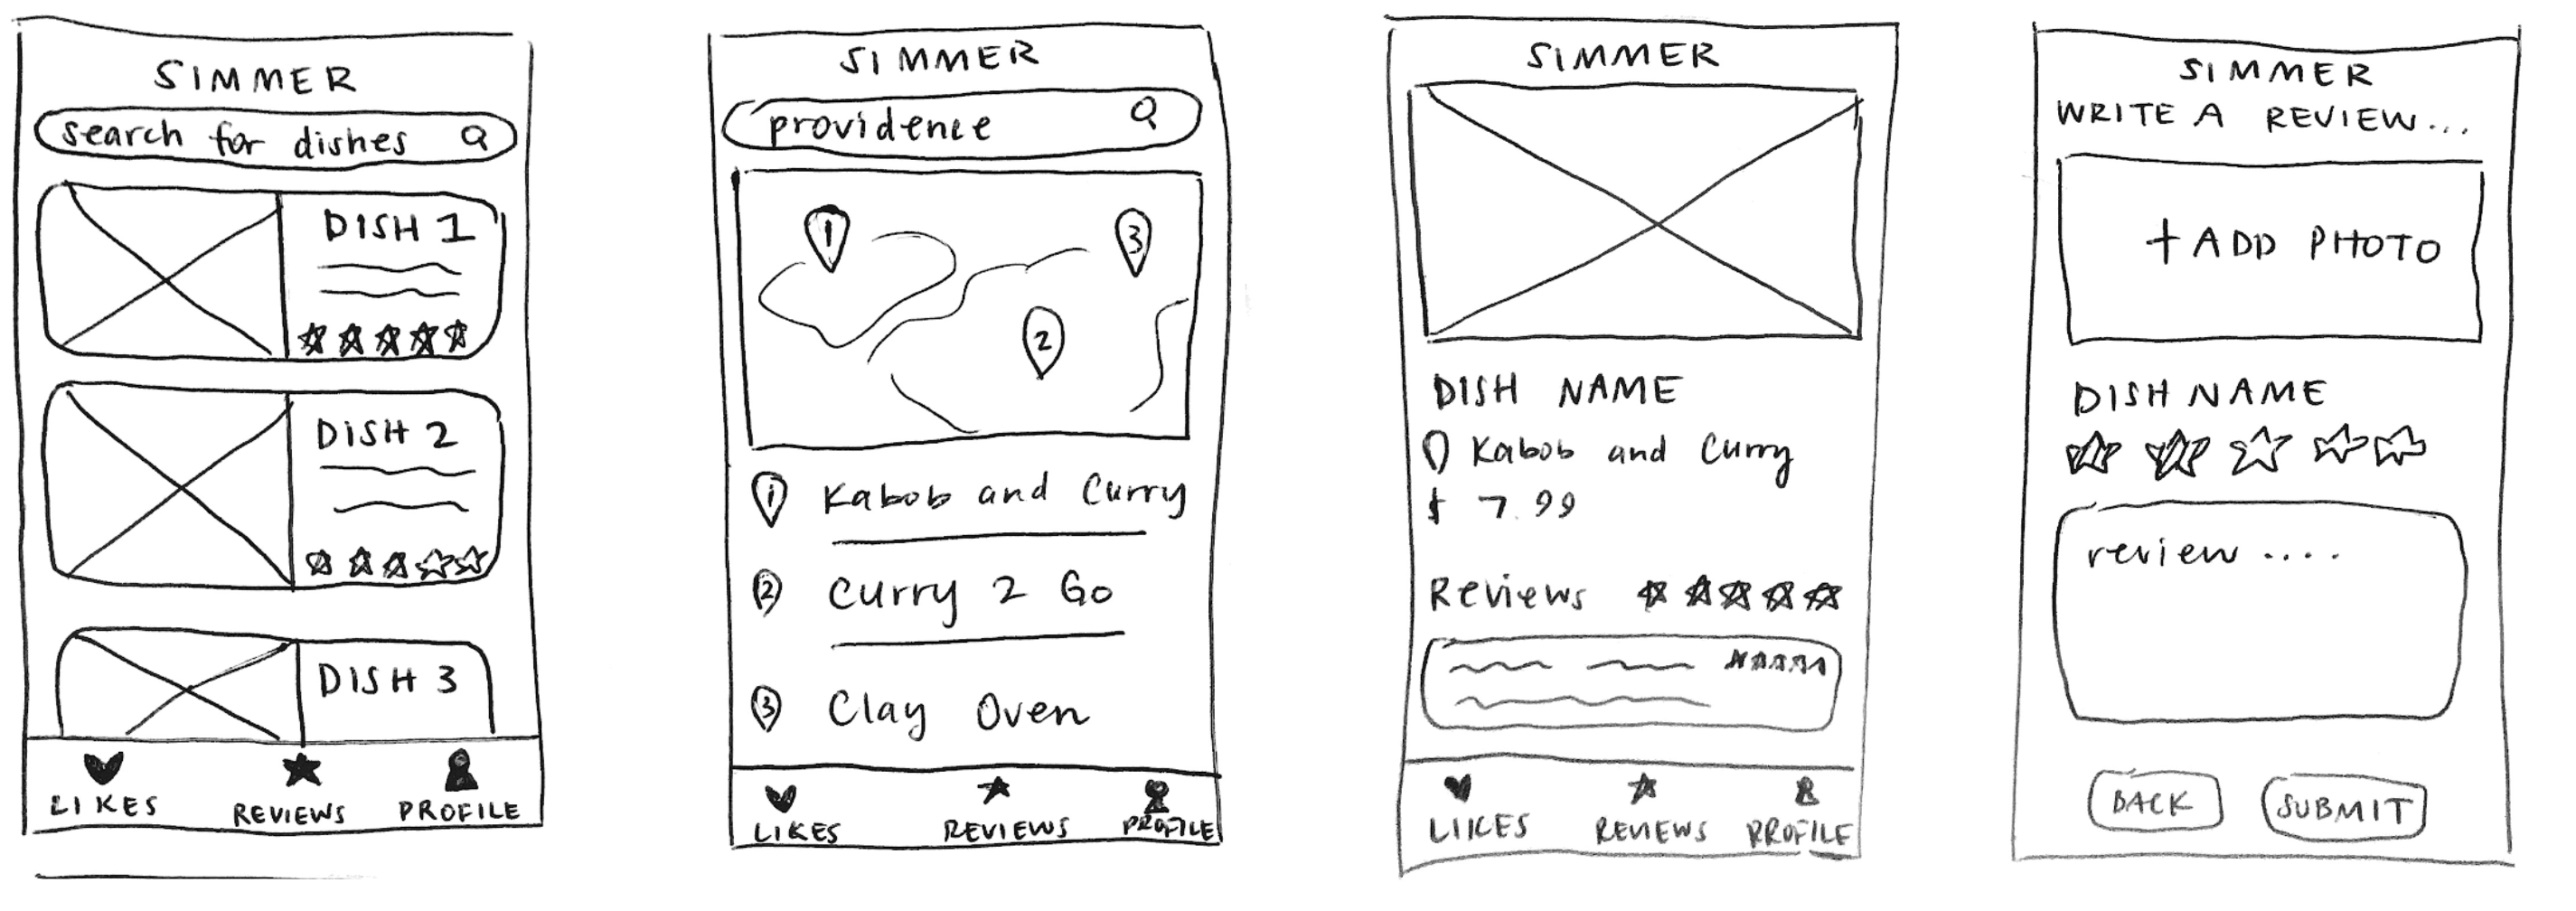 SIMMER
search for dishes
DISH 1
DISH 2
DISH 3
LIKES REVIEWS PROFILE
SIMMER
providence
1
3
2
1 Kabob and Curry
2 Curry 2 Go
3 Clay Oven
LIKES REVIEWS PROFILE
SIMMER
DISH NAME
Kabob and Curry
$ 7.99
Reviews
LIKES REVIEWS PROFILE
SIMMER
WRITE A REVIEW...
+ ADD PHOTO
DISH NAME
review ....
BACK SUBMIT